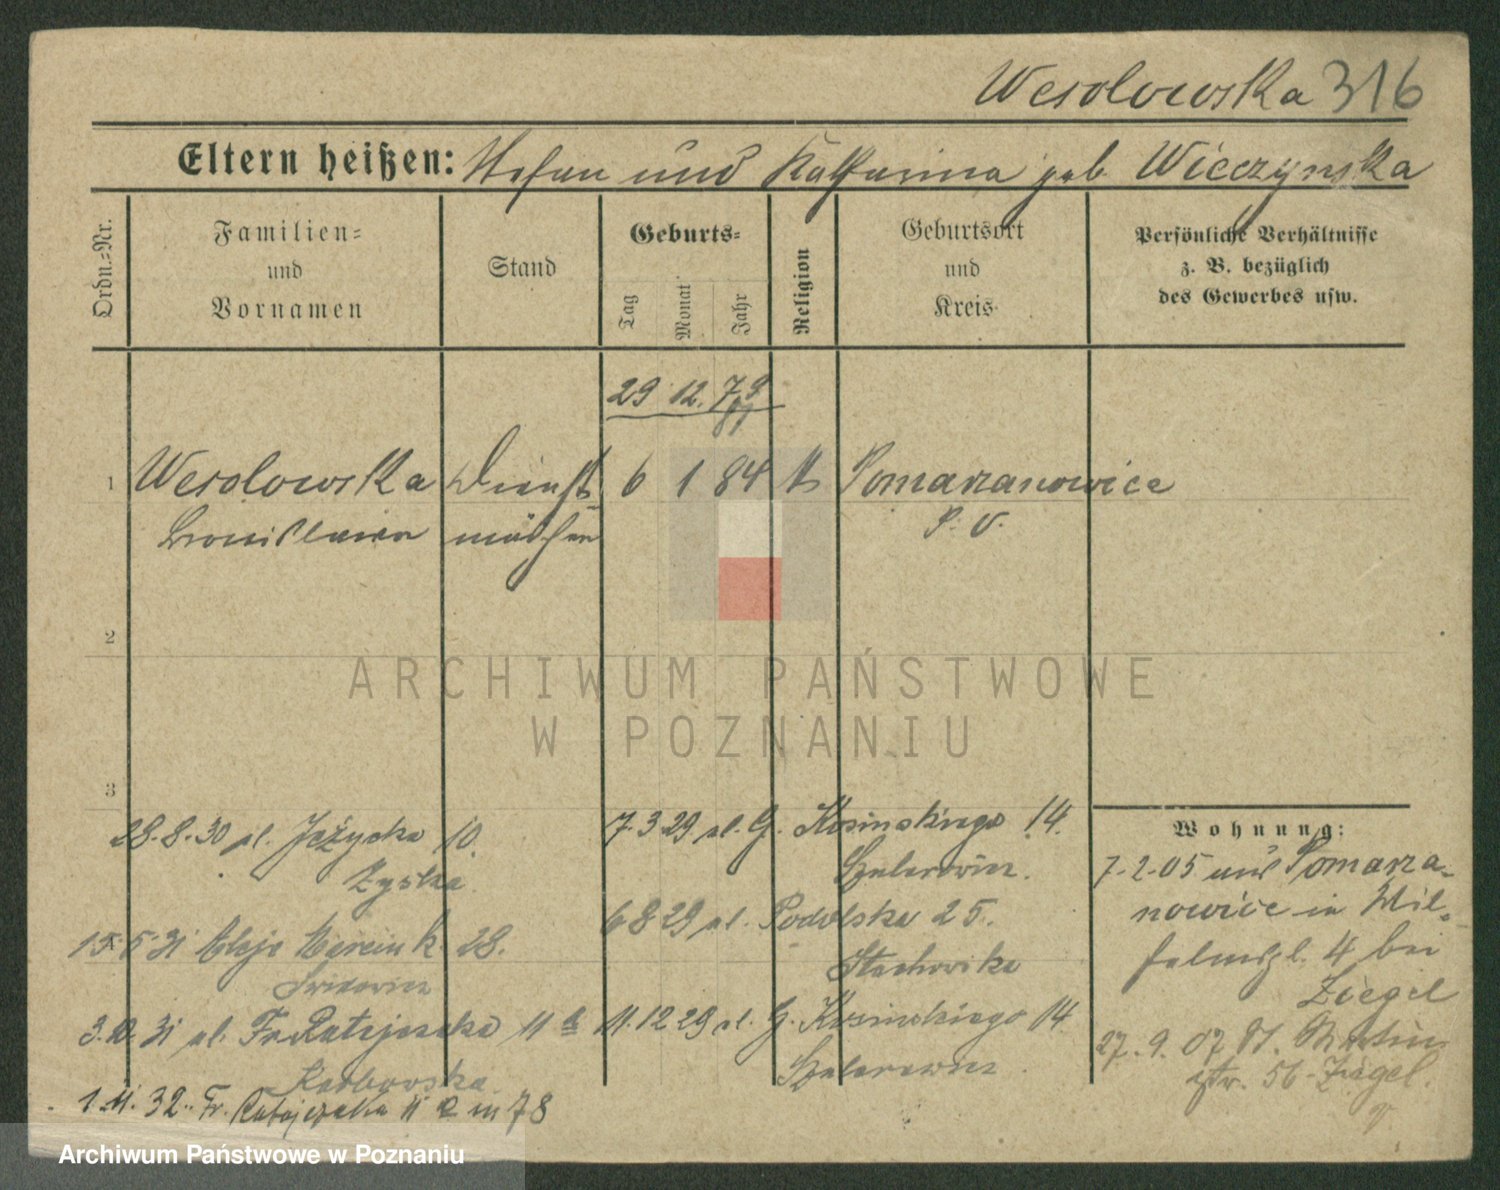 Wesolowska 316
Eltern heißen: Stefan und Katharina geb. Wieczynska
Ordn.-Nr.
Familien-
und
Vornamen
Stand
Geburts-
Tag
Monat
Jahr
Religion
Geburtsort
und
Kreis
Persönliche Verhältnisse
z. B. bezüglich
des Gewerbes usw.
29 12. 79
1 Wesolowska Dienst- 6 1 84 Pomarzanowice
mädchen P. O.
2
ARCHIWUM PAŃSTWOWE
W POZNANIU
3
28.8.30 ul. Jeżycka 10.
Zyska
15.5.31 Aleje Marcink. 28.
3.12.31 ul. Fr. Ratajczaka 11 a
1.11.32. Fr. Ratajczaka 11 a m 78
7.3 29 ul. G. Kosinskiego 14.
6 8 29 ul. Podolska 25.
Stachowska
11.12 29 ul. G. Kosinskiego 14
Wohnung:
7.2.05 aus Pomarza-
nowice in Wil-
helmspl. 4 bei
Ziegel
27.9.07 St. Martin
str. 56 Ziegel.
Archiwum Państwowe w Poznaniu